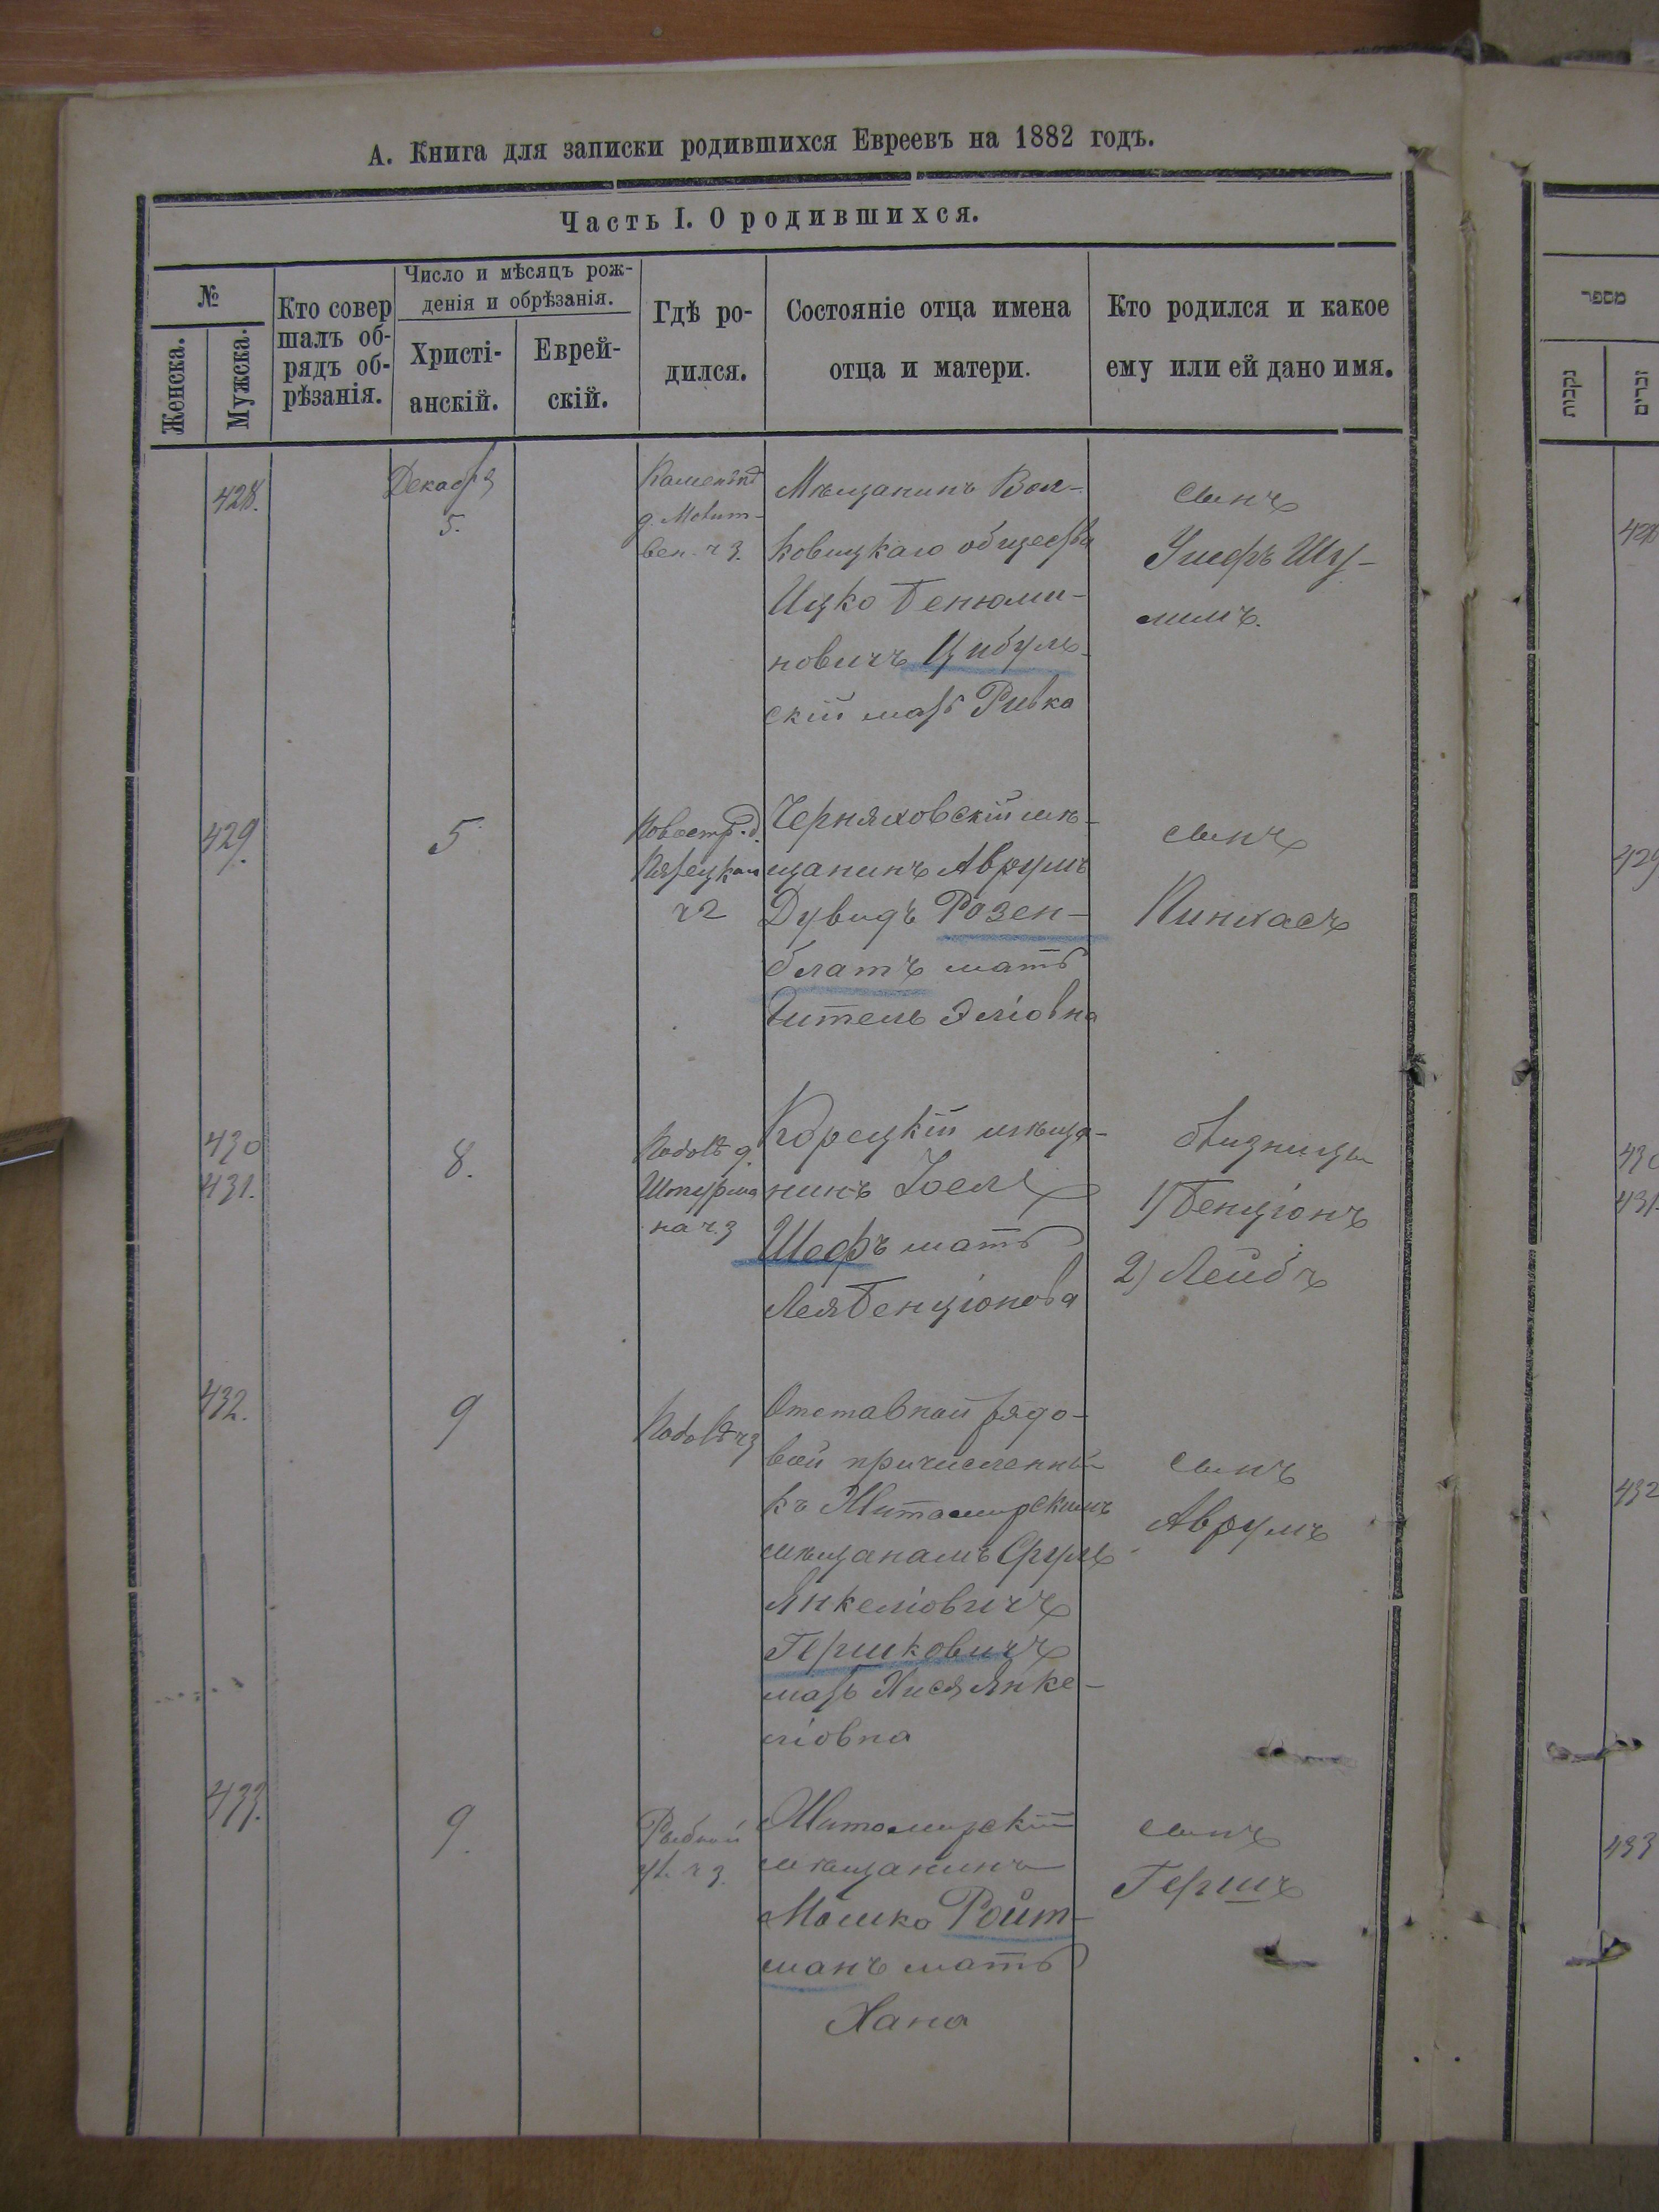 А. Книга для записки родившихся Евреевъ на 1882 годъ.
Часть I. О родившихся.
№
Женска.
Мужска.
Кто совер
шалъ об-
рядъ об-
рѣзанія.
Число и мѣсяцъ рож-
денія и обрѣзанія.
Христі-
анскій.
Еврей-
скій.
Гдѣ ро-
дился.
Состояніе отца имена
отца и матери.
Кто родился и какое
ему или ей дано имя.
מספר
נקבות
זכרים
428.
Декабря
5.
ч 3.
Мѣщанинъ Вол-
ковицкаго общества
Ицко Бенюми-
новичъ Цибуль-
скій мать Ривка
сынъ
Усиоръ Шу-
лимъ.
428
429.
5
ч 2
Черняховскій мѣ-
щанинъ Аврумъ
Дувидъ Розен-
блатъ мать
Гитель Эліовна
сынъ
Пинхасъ
429
430
431.
8.
Штурма
на ч 3
Корецкій мѣща-
нинъ Іосель
Шефъ мать
Лея Бенціонова
близнецы
1) Бенціонъ
2) Лейбъ
430
431.
432.
9
ч 3
Отставной рядо-
вой причисленный
къ Житомирскимъ
мѣщанамъ Сруль
Янкеліовичъ
Гершковичъ
мать Хися Янке-
ліовна
сынъ
Аврумъ
432
433.
9.
Рыбный
ул. ч 3.
Житомирскій
мѣщанинъ
Мошко Ройт-
манъ мать
Хана
сынъ
Гершъ
433